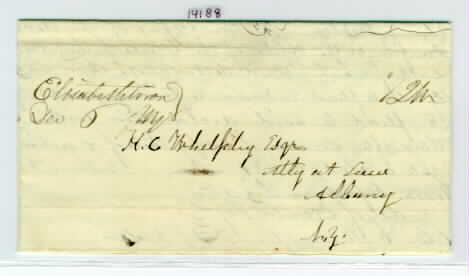 14188
Elizabethtown
Dec 6 NY
12½
K. C. Whelpley Esqr
Atty at Law
Albany
N.Y.